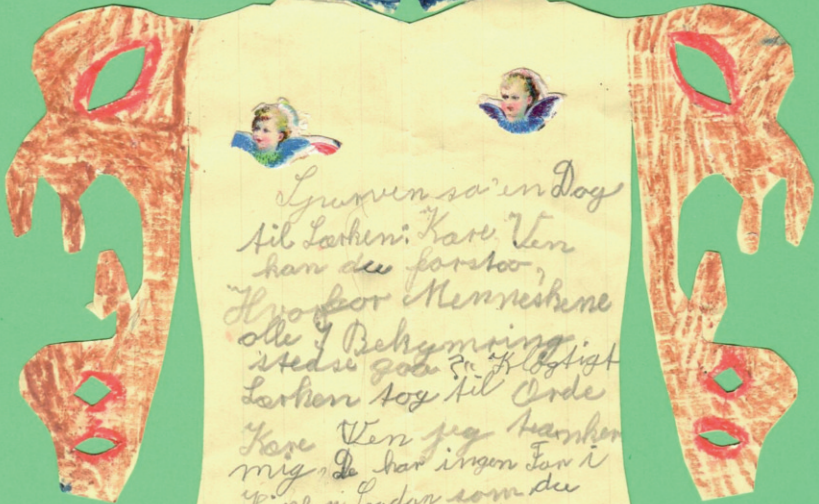 Spurven sa' en Dag
til Lærken: Kære Ven
kan du forstaa,
Hvorfor Menneskene
alle I Bekymring
stedse gaa? Kløgtigt
Lærken tog til Orde
Kære Ven jeg tænker
mig, De har ingen Far i
som du